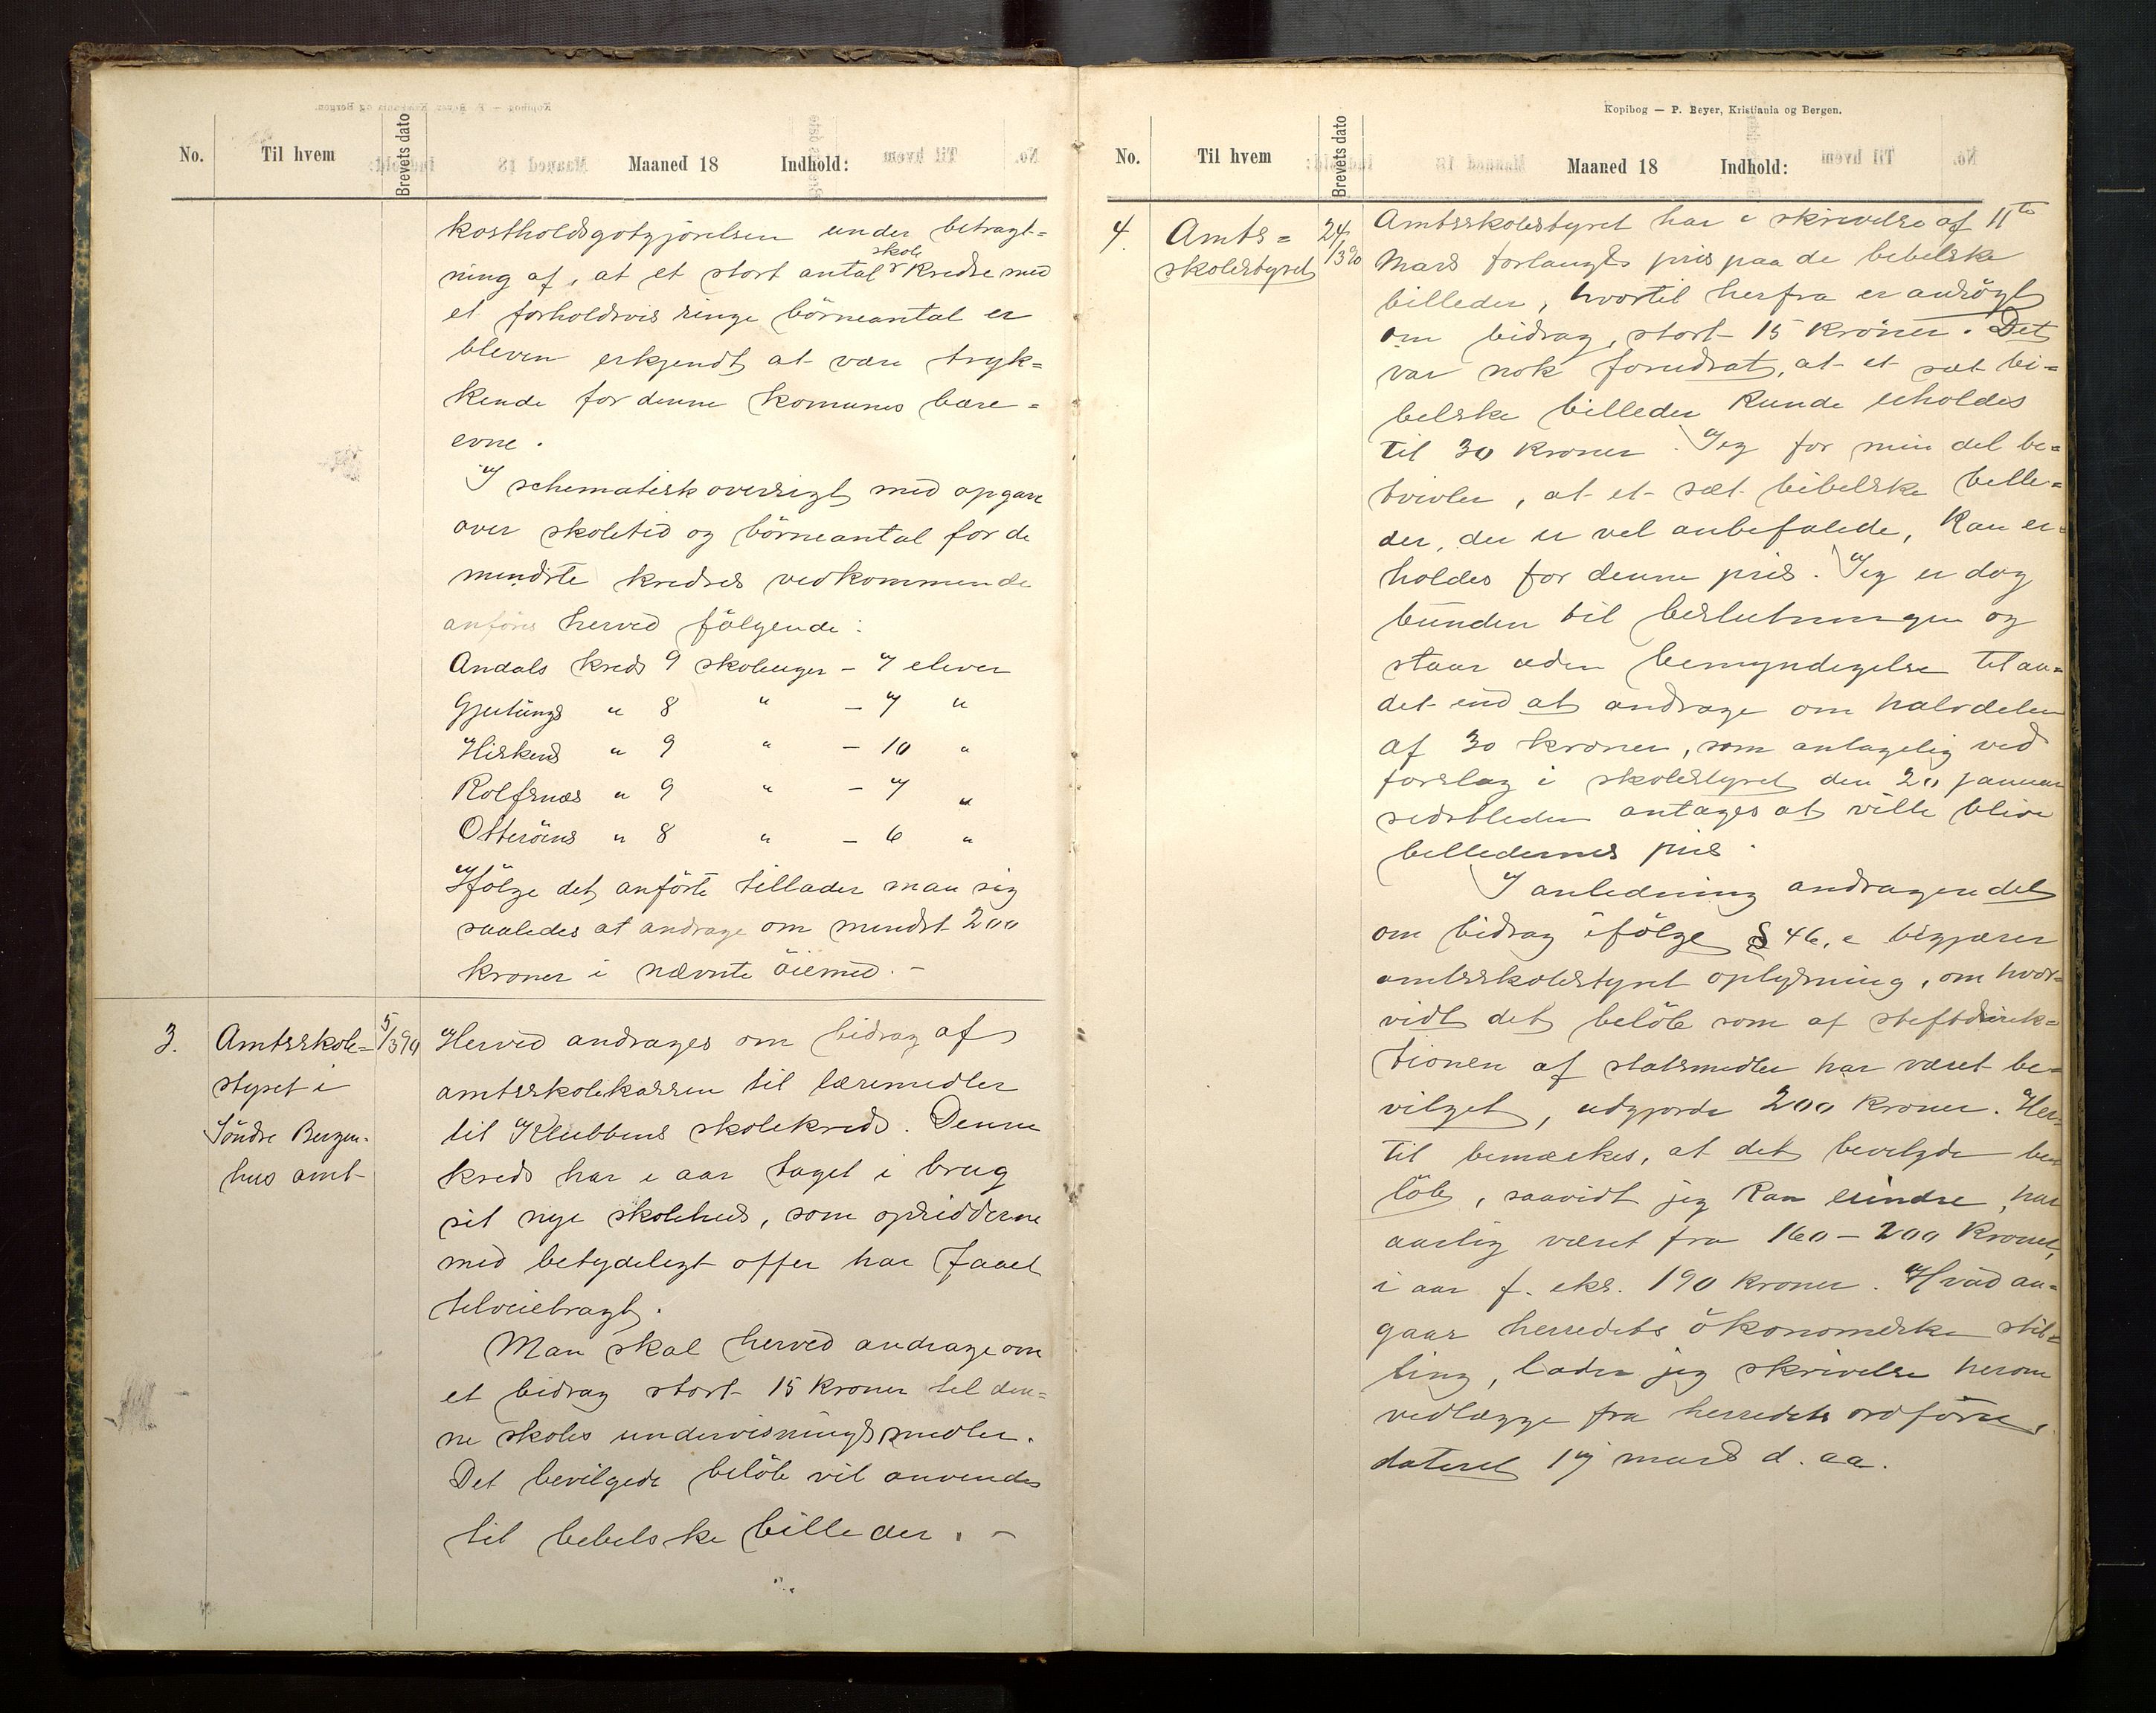 No. Til hvem Brevets dato Maaned 18 Indhold:
kostholdsgotgjörelsen under betragt=
ning af, at et stort antal skole kredse med
et forholdsvis ringe börneantal er
bleven erkjendt at være tryk=
kende for denne komunes bære=
evne.
I schematisk oversigt med opgave
over skoletid og börneantal for de
mindste kredses vedkommende
anföres herved fölgende:
Andals kreds 9 skoleuger – 7 elever
Gjertungs " 8 " – 7 "
Hiskens " 9 " – 10 "
Rolfsnæs " 9 " – 7 "
Otteröens " 8 " – 6 "
Ifölge det anförte tillader man sig
saaledes at andrage om mindst 200
kroner i nævnte öiemed. –
3. Amtsskole=
styret i
Söndre Bergen-
hus amt
5/3 90
Herved andrages om bidrag af
amtsskolekassen til læremidler
til Klubbens skolekreds. Denne
kreds har i aar taget i brug
sit nye skolehus, som opsidderne
med betydeligt offer har faaet
tilveiebragt.
Man skal herved andrage om
et bidrag stort 15 kroner til den=
ne skoles undervisningsmidler.
Det bevilgede belöb vil anvendes
til bebelske billeder. –
Kopibog — P. Beyer, Kristiania og Bergen.
No. Til hvem Brevets dato Maaned 18 Indhold:
4. Amts=
skolestyret
24/3 90
Amtsskolestyret har i skrivelse af 11te
Mars forlangt pris paa de bebelske
billeder, hvortil herfra er andrögt
om bidrag, stort 15 kroner. Det
var nok forudsat, at et sæt bi=
belske billeder kunde erholdes
til 30 kroner. Jeg for min del be=
tvivler, at et sæt bibelske bille=
der, der er vel anbefalede, kan er=
holdes for denne pris. Jeg er dog
bunden til beslutningen og
staar uden bemyndigelse til an=
det end at andrage om halvdelen
af 30 kroner, som antagelig ved
forslag i skolestyret den 20 januar
sidstleden antages at ville blive
billedernes pris.
I anledning andragendet
om bidrag ifölge § 46, c begjærer
amtsskolestyret oplysning, om hvor=
vidt det belöb som af stiftsdirek=
tionen af statsmidler har været be=
vilget, udgjorde 200 kroner. Her=
til bemærkes, at det bevilgde be=
löb, saavidt jeg kan erindre, har
aarlig været fra 160 – 200 kroner,
i aar f. eks. 190 kroner. Hvad an=
gaar herredets ökonomiske stil=
ling, lader jeg skrivelse herom
vedlægge fra herredets ordförer,
dateret 17 mars d. aa.